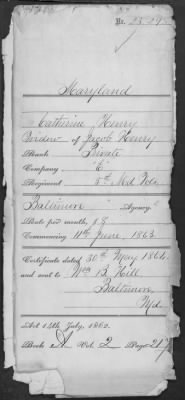 No. 23.29
Maryland
Catharine Henry
Widow of Jacob Henry
Rank Private
Company "E"
Regiment 5th Md Vols
Baltimore Agency.
Rate per month, $8
Commencing 11th June, 1863
Certificate dated 30th May 1864
and sent to Wm B. Hill
Baltimore,
Md
Act 14th July, 1862.
Book A Vol. 2 Page 217